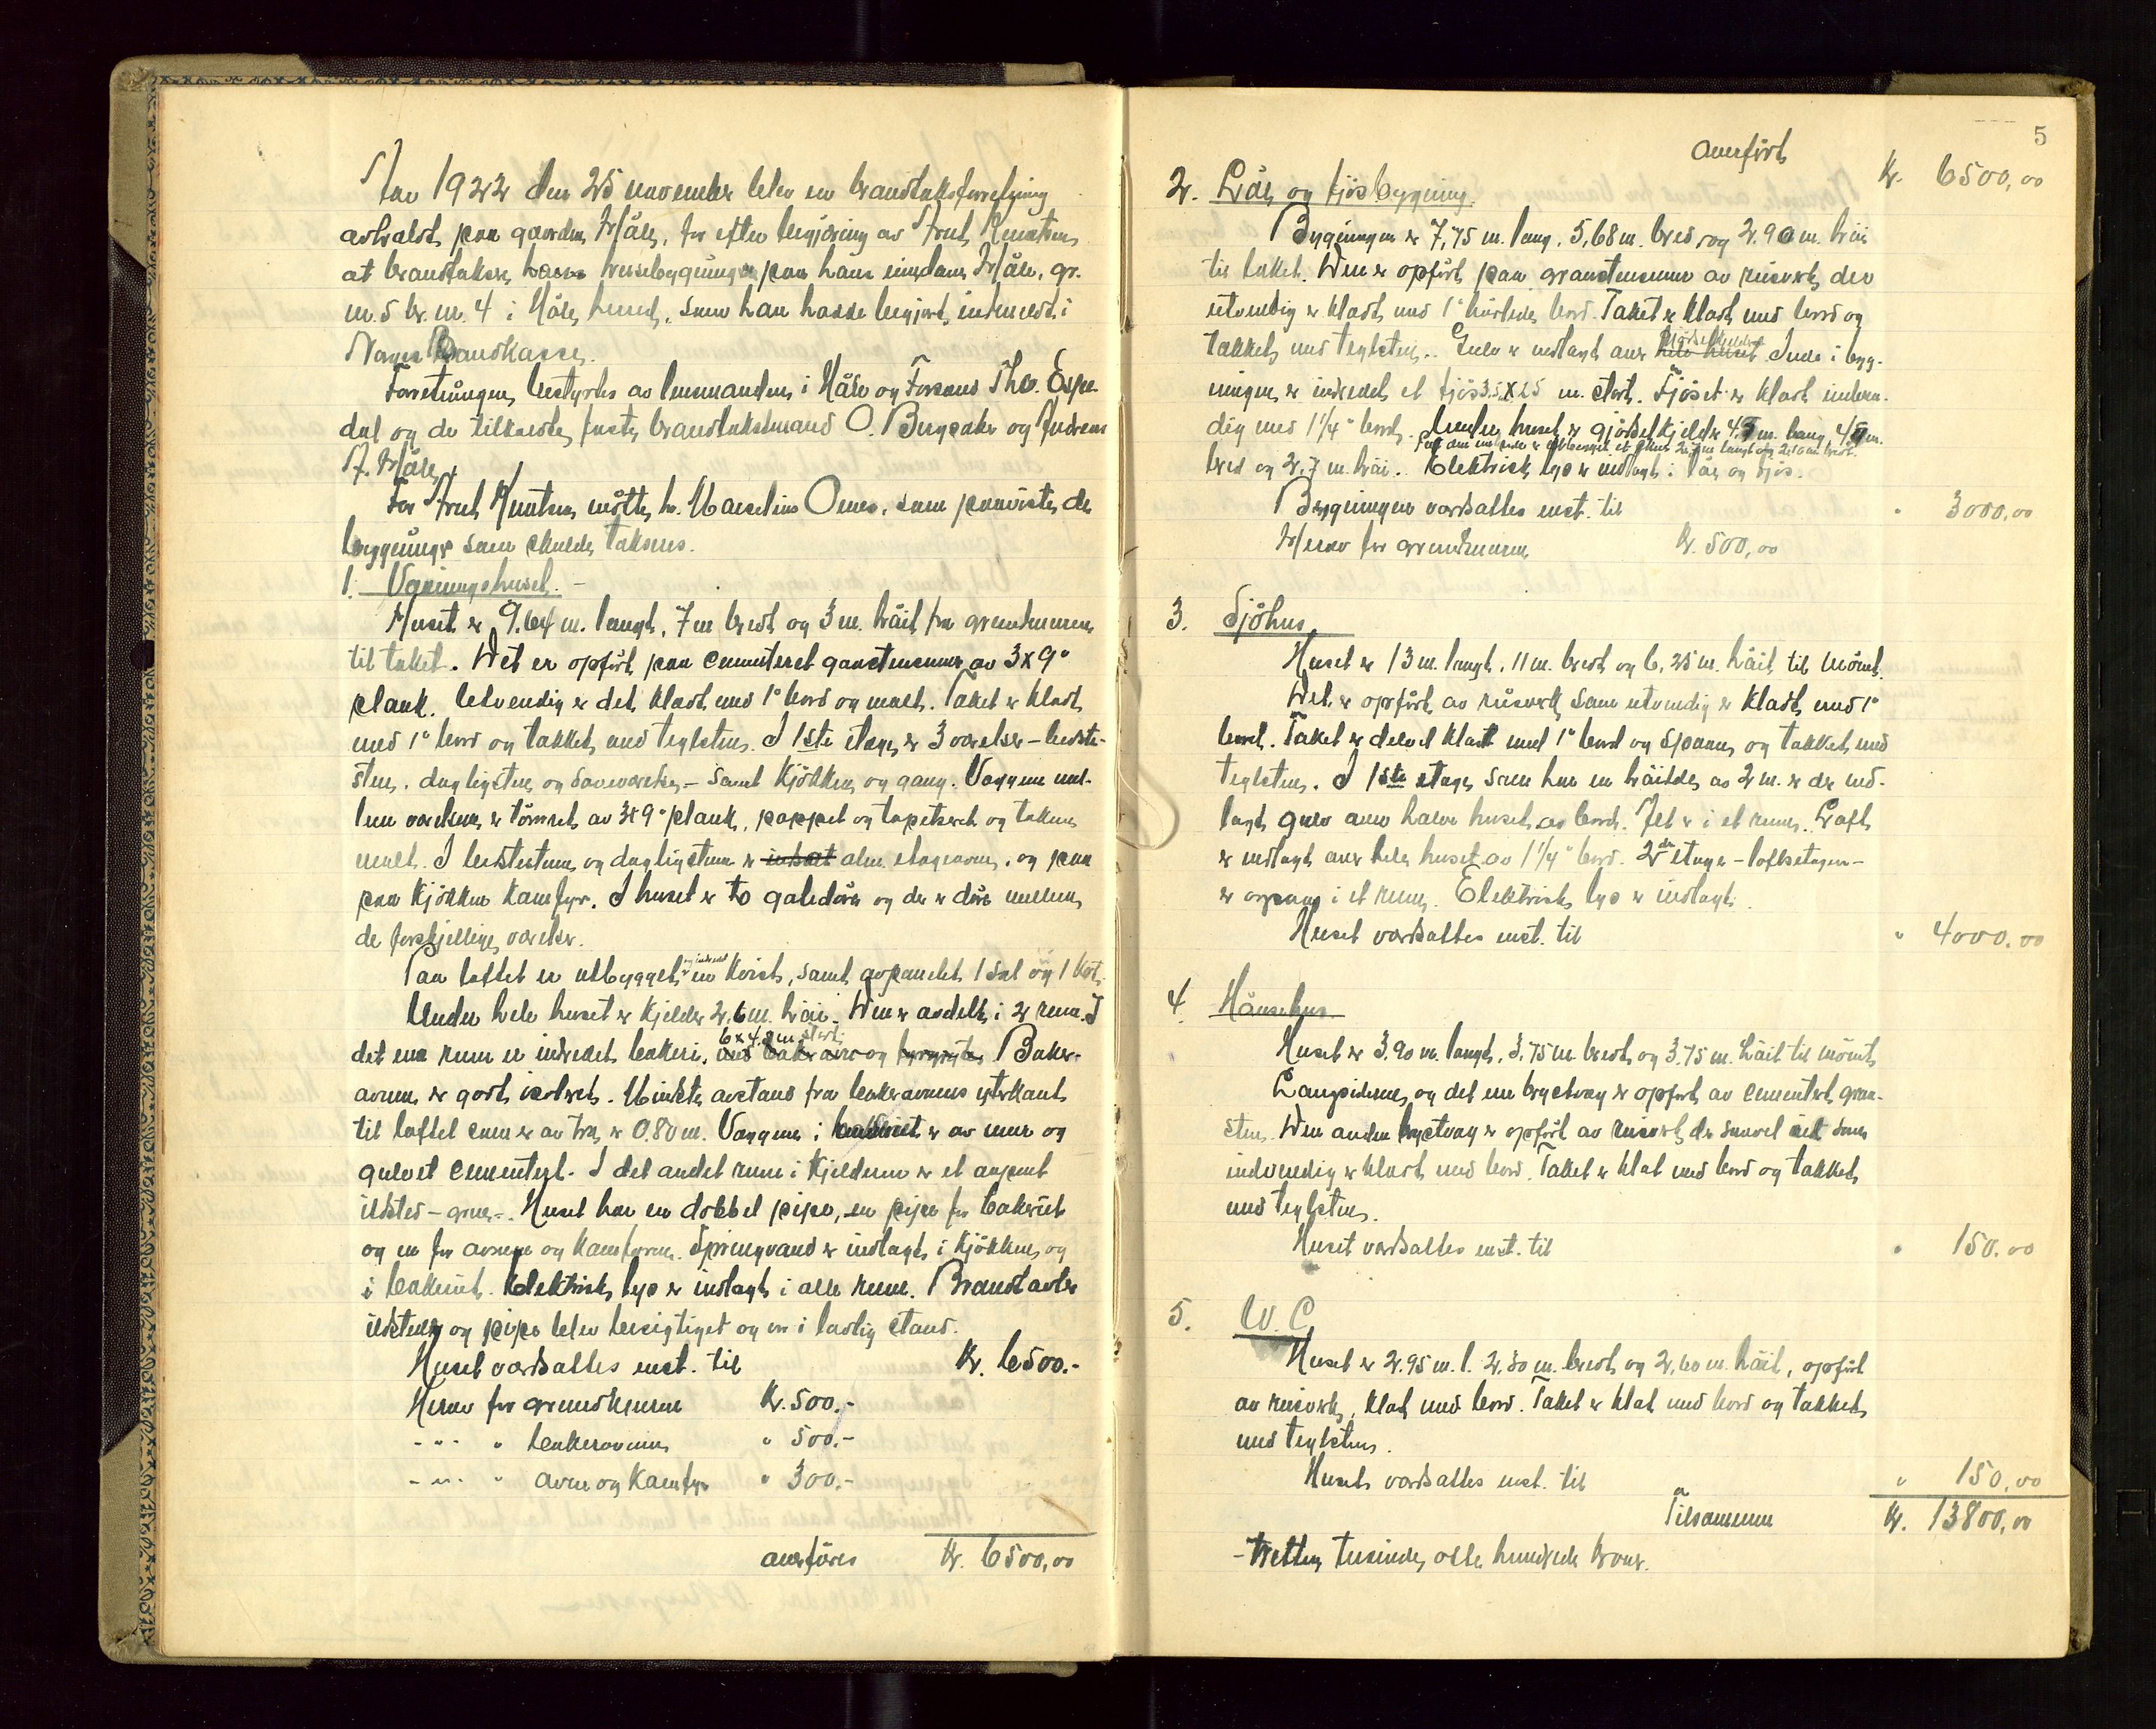 Aar 1922 den 25 november blev en brandtakstforretning
avholdt paa gaarden Håle, for efter begjæring av Knut Knutsen
at brandtaksere husebygninger paa hans eiendom Håle, gr.
nr. 5 br. nr. 4 i Håle herred, som han hadde begjært indmeldt i
Norges Brandkasse.
Forretningen bestyrtes av lensmanden i Håle og Forsand Thv. Espe-
dal og de tilkaldte faste brandtakstmænd O. Bergsaker og Andreas
A. Håle.
For Knut Knutsen møtte hr. Marselius Omes, som paaviste de
bygninger som skulde takseres.
1. Vaaningshuset. -
Huset er 9,64 m. langt, 7 m bredt og 3 m. höit fra grundmuren
til taket. Det er opført paa cementeret graastensmur av 3x9"
plank. Utvendig er det klædt med 1" bord og malt. Taket er klædt
med 1" bord og tækket med teglsten. I 1ste etage er 3 værelser - bedste-
stue, dagligstue og soveværelse - samt kjökken og gang. Væggene mel-
lem værelsene er tömret av 3x9" plank, pappet og tapetseret og taken
malt. I bedstestuen og dagligstuen er indsat alm. etageovn, og paa
paa kjökken kamfyr. I huset er to gatedörer og der er dörer mellem
de forskjellige værelser.
Paa loftet er utbygget og indredet en kvist, samt avpanelet 1 sal og 1 kot.
Under hele huset er kjelder 2,6 m. höi. Den er avdelt i 2 rum. I
det ene rum er indredet bakeri, 6 x 4,8 m stort. med bakerovn og Baker-
ovnen er godt isoleret. Mindste avstand fra bakerovnens yterkant
til loftet som er av træ er 0.80 m. Væggene i bakeriet er av mur og
gulvet cementert. I det andet rum i kjelderen er et aapent
ildsted - grue -. Huset har en dobbel pipe, en pipe for bakeriet
og en for ovnene og kamfyren. Springvand er indlagt i kjökken og
i bakeriet. Elektrisk lys er indlagt i alle rum. Brandtavler
ildsteder og pipe blev besigtiget og er i lovlig stand.
Huset værdsattes enst. til Kr. 6500.-
Herav for grundmuren Kr. 500.-
- " - " bakerovnen " 500.-
- " - " ovne og kamfyr " 300.-
overføres Kr. 6500,00
5
overfört Kr. 6500,00
2. Låe og fjösbygning.
Bygningen er 7,75 m. lang, 5,68 m. bred og 2.90 m. höi
til taket. Den er opført paa graastensmur av reisverk der
utvendig er klædt med 1" bord. Taket er klædt med bord og
tækket med teglsten. Gulv er indlagt over hele huset gjödselkjelder. Inde i byg-
ningen er indredet et fjös 3.5 x 2.5 m. stort. Fjöset er klædt indven-
dig med 1 1/4" bord. Under huset er gjödselkjelder 4,5 m. lang, 4,5 m.
bred og 2,7 m. höi. Elektrisk lys er indlagt i låe og fjös.
Bygningen værdsattes enst. til " 3000,00
Herav for grundmuren Kr. 500,00
3. Sjöhus
Huset er 13 m. langt, 11 m. bredt og 6,25 m. höit til mönet.
Det er opført av reisverk som utvendig er klædt med 1"
bord. Taket er delvel klædt med 1" bord og spaan og tækket med
teglsten. I 1ste etage som har en höide av 2 m. er der ind-
lagt gulv over halve huset av bord. Alt er i et rum. Loft
er indlagt over hele huset av 1 1/4" bord. 2den etage - loftsetagen -
er ogsaa i et rum. Elektrisk lys er indlagt.
Huset værdsattes enst. til " 4000.00
4. Hönsehus
Huset er 3.90 m. langt, 3,75 m. bredt og 3.75 m. höit til mönet.
Langsiderne og det ene brystvæg er opført av cementert graa-
sten. Den anden brystvæg er opført av reisverk der saavel ut som
indvendig er klædt med bord. Taket er klæt med bord og tækket
med teglsten.
Huset værdsattes enst. til " 150.00
5. W. C.
Huset er 2.95 m. l. 2,30 m. bredt og 2,60 m. höit, opført
av reisverk, klæt med bord. Taket er klæt med bord og tækket
med teglsten.
Huset værdsattes enst. til " 150,00
Tilsammen Kr. 13800,00
- Tretten tusinde, otte hundrede kroner.